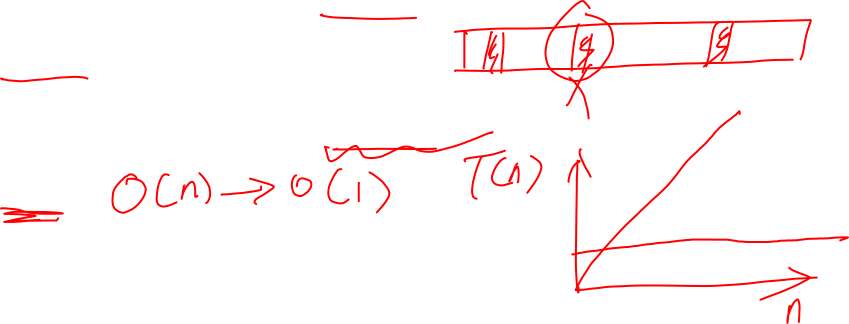 O(n) → O(1)
T(n)
n